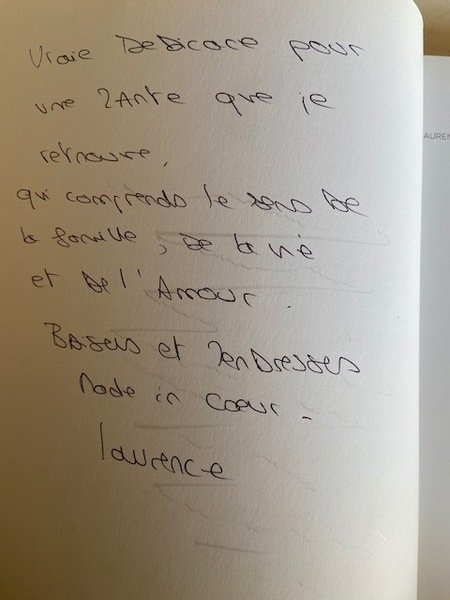 Vraie Dedicace pour
une Tante que je
retrouve,
qui comprends le sens De
la famille, De la vie
et De l'Amour.
Basers et TenDresses
Made in Cœur.
laurence
AUREN